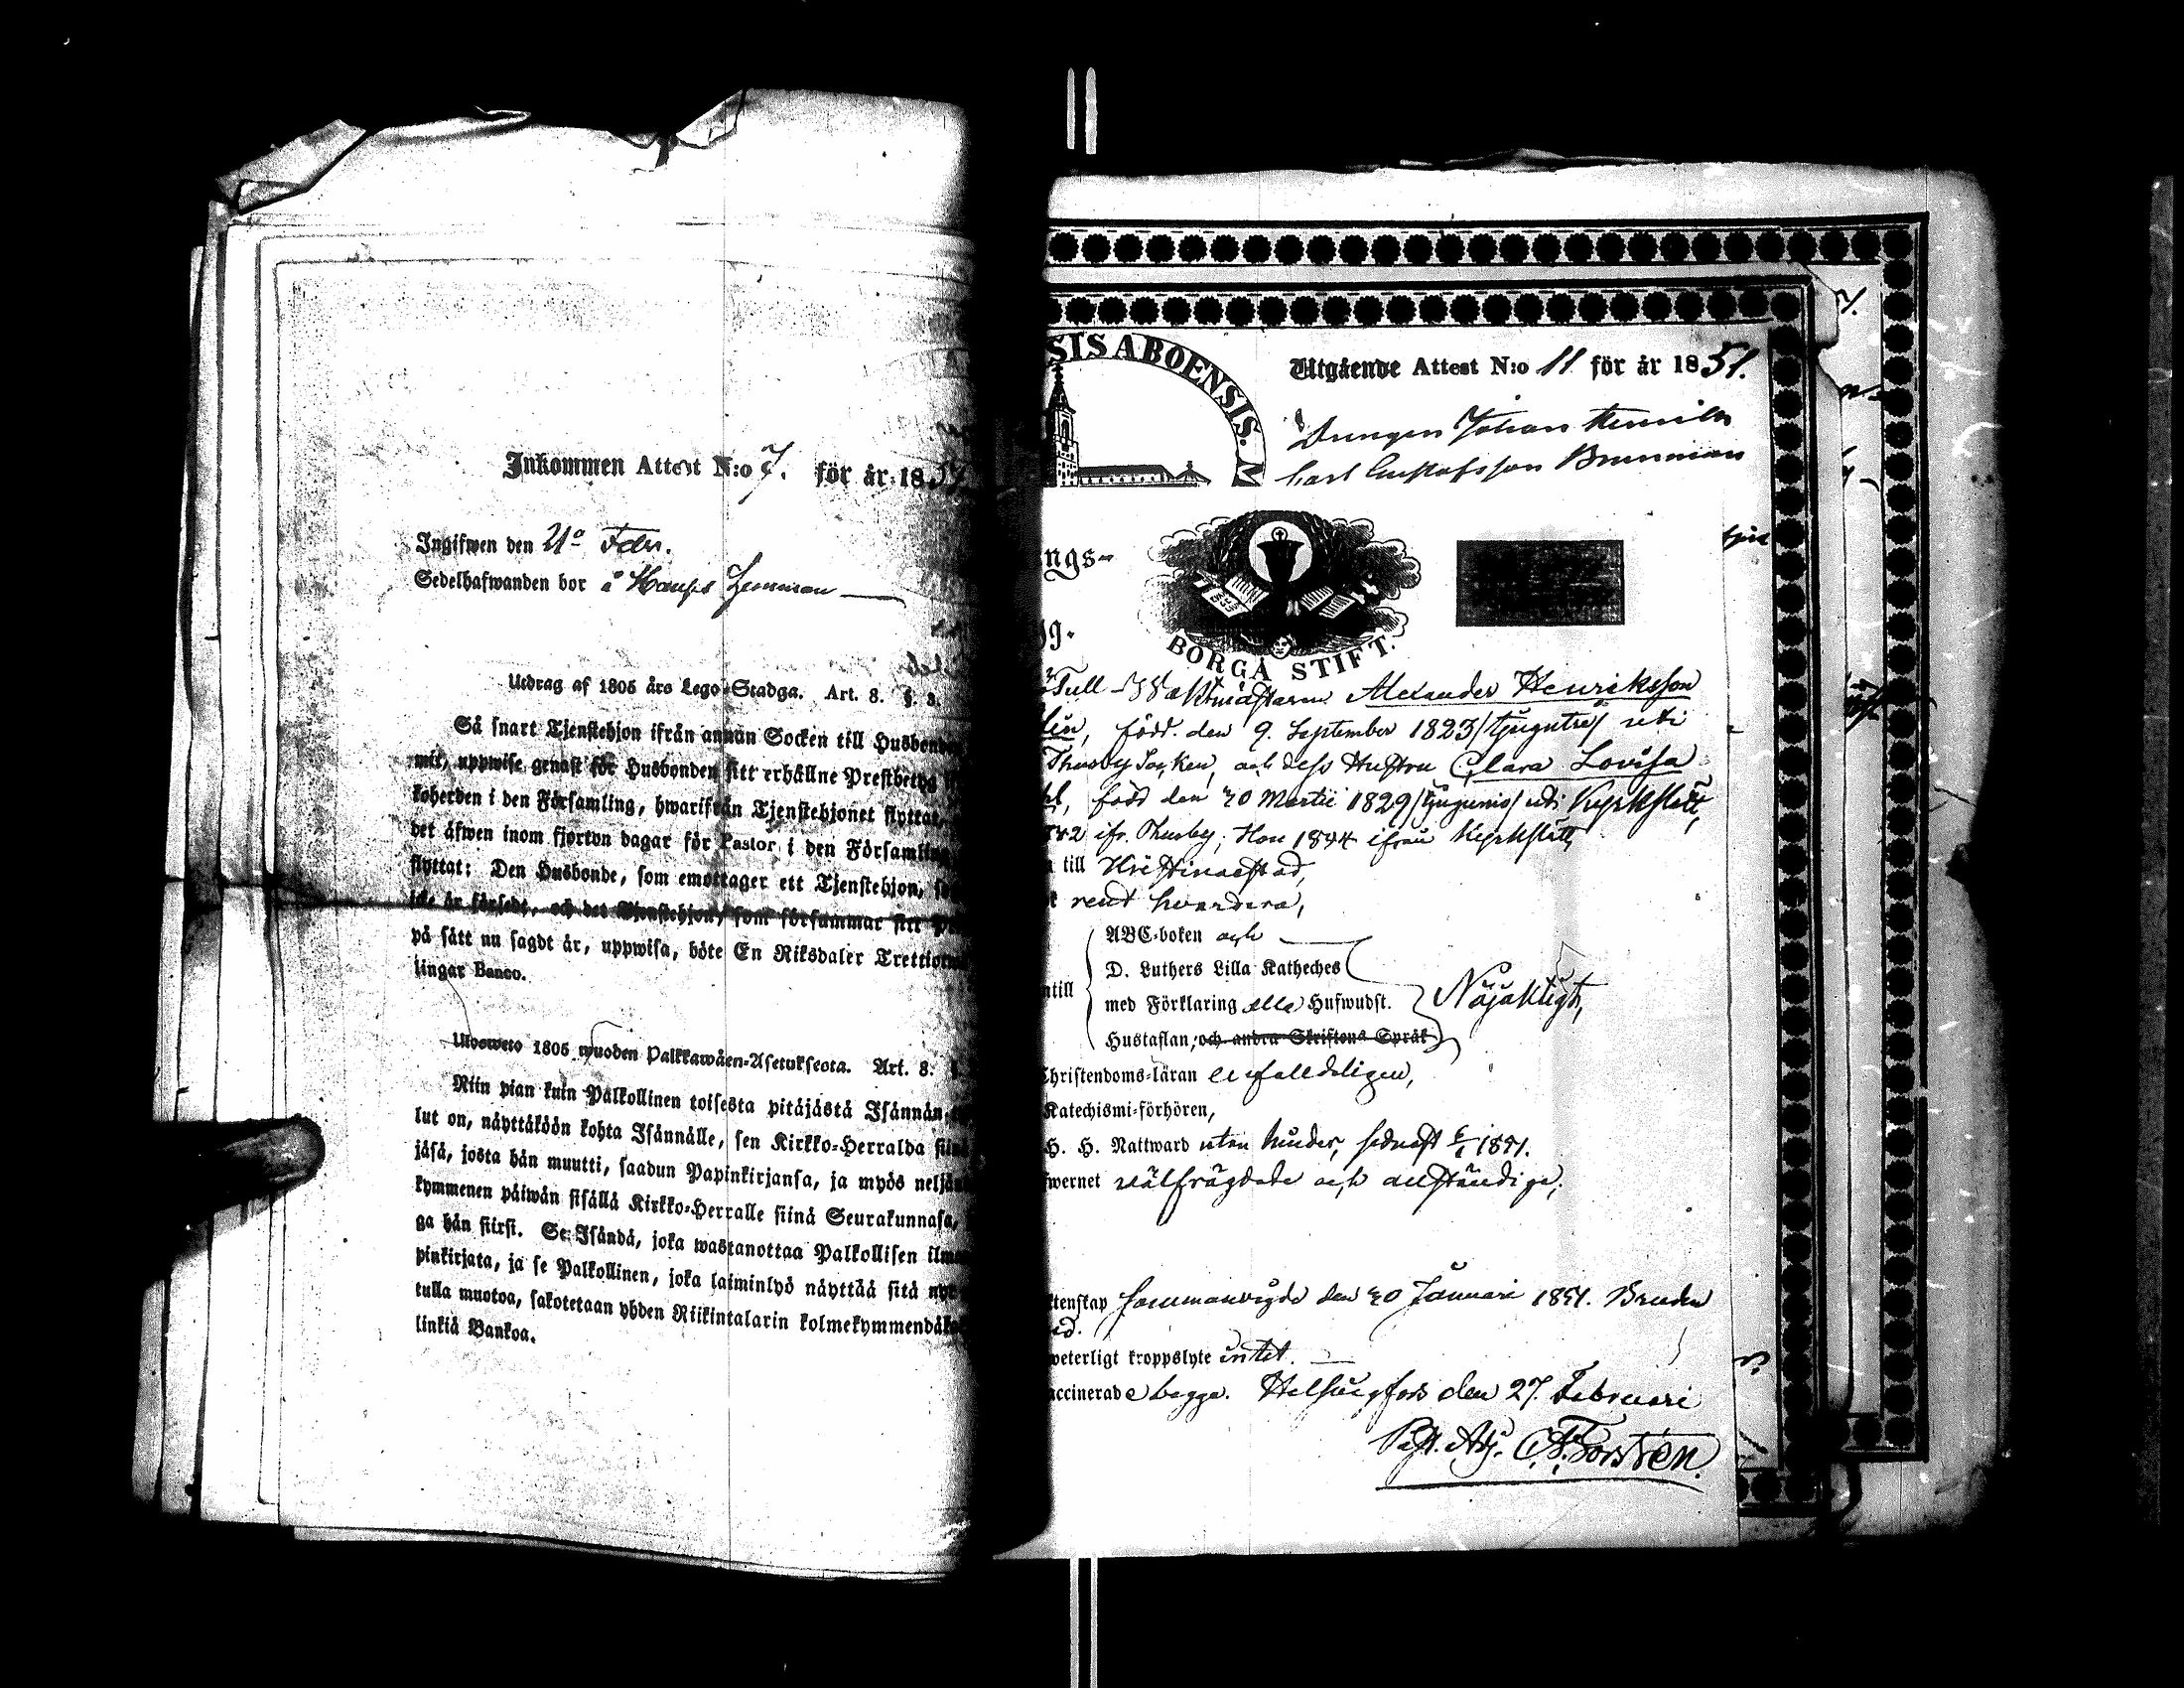 Inkommen Attest N:o 7. för år 18
Ingifwen den 21o Febr.
Sedelhafwanden bor å
Utdrag af 1805 års Lego-Stadga. Art. 8. §. 3.
Så snart Tjenstehjon ifrån annan Socken till Husbonde
mit, uppwise genast för Husbonden sitt erhållne Prestbetyg
koherden i den Församling, hwarifrån Tjenstehjonet flyttat,
det äfwen inom fjorton dagar för Pastor i den Församling
flyttat: Den Husbonde, som emottager ett Tjenstehjon,
icke är försedt, och det Tjenstehjon, som försummar sitt
på sätt nu sagdt är, uppwisa, böte En Riksdaler Trettio
lingar Banco.
Ulosweto 1805 wuoden Palkkawäen-Asetuksesta. Art. 8.
Niin pian kuin Palkollinen toisesta pitäjästä Isännän
lut on, näyttäköön kohta Isännälle, sen Kirkko-Herralda
jäsä, josta hän muutti, saadun Papinkirjansa, ja myös neljä
kymmenen päiwän sisällä Kirkko-Herralle siinä Seurakunnasa,
ga hän siirsi. Se Isändä, joka wastanottaa Palkollisen ilm
pinkirjata, ja se Palkollinen, joka laiminlyö näyttää sitä
tulla muotoa, sakotetaan yhden Riikintalarin kolmekymmendä
linkiä Bankoa.
SIS ABOENSIS. M
Utgående Attest N:o 11 för år 1851.
Drengen Johan Henrik
Carl Gustafsson Brunnian
ngs-
BORGÅ STIFT.
Tull-Waktmästaren Alexander Henriksson
lin, född den 9. September 1823/tjugutre/ uti
Thusby Socken, och dess Hustru Clara Lovisa
född den 20 Martii 1829/tjugunio/ uti Kyrkslätt,
ifr. Thusby; Hon 1844 ifrån Kyrkslätt,
till Kristinaestad,
rent hvardera,
ABC-boken och
D. Luthers Lilla Katheches
med Förklaring Hufwudst.
Hustaflan, och andra Skriftens Språk
ntill
Nöjaktigt,
Christendoms-läran enfalldeligen,
Katechismi-förhören,
H. H. Nattward utan hinder, sednast 6/1 1851.
wernet välfrägdade och anständige,
ktenskap sammanvigde den 30 Januari 1851. Bruden
ed.
weterligt kroppslyte intet.
accinerade begge. Helsingfors den 27. Februari
Past. Adj. C. F. Forstén.